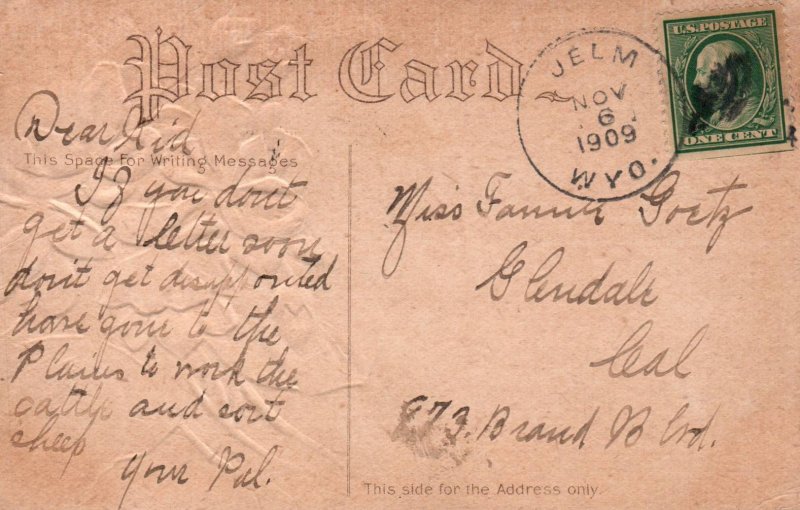 Post Card
U.S. POSTAGE
ONE CENT
JELM
NOV
6
1909
WYO.
Dear Kid
This Space For Writing Messages
If you dont
get a letter soon
don't get disappointed
have gone to the
Plains to work the
cattle and sort
sheep
Your Pal.
Miss Fannie Goetz
Glendale
Cal
673. Brand Blvd.
This side for the Address only.